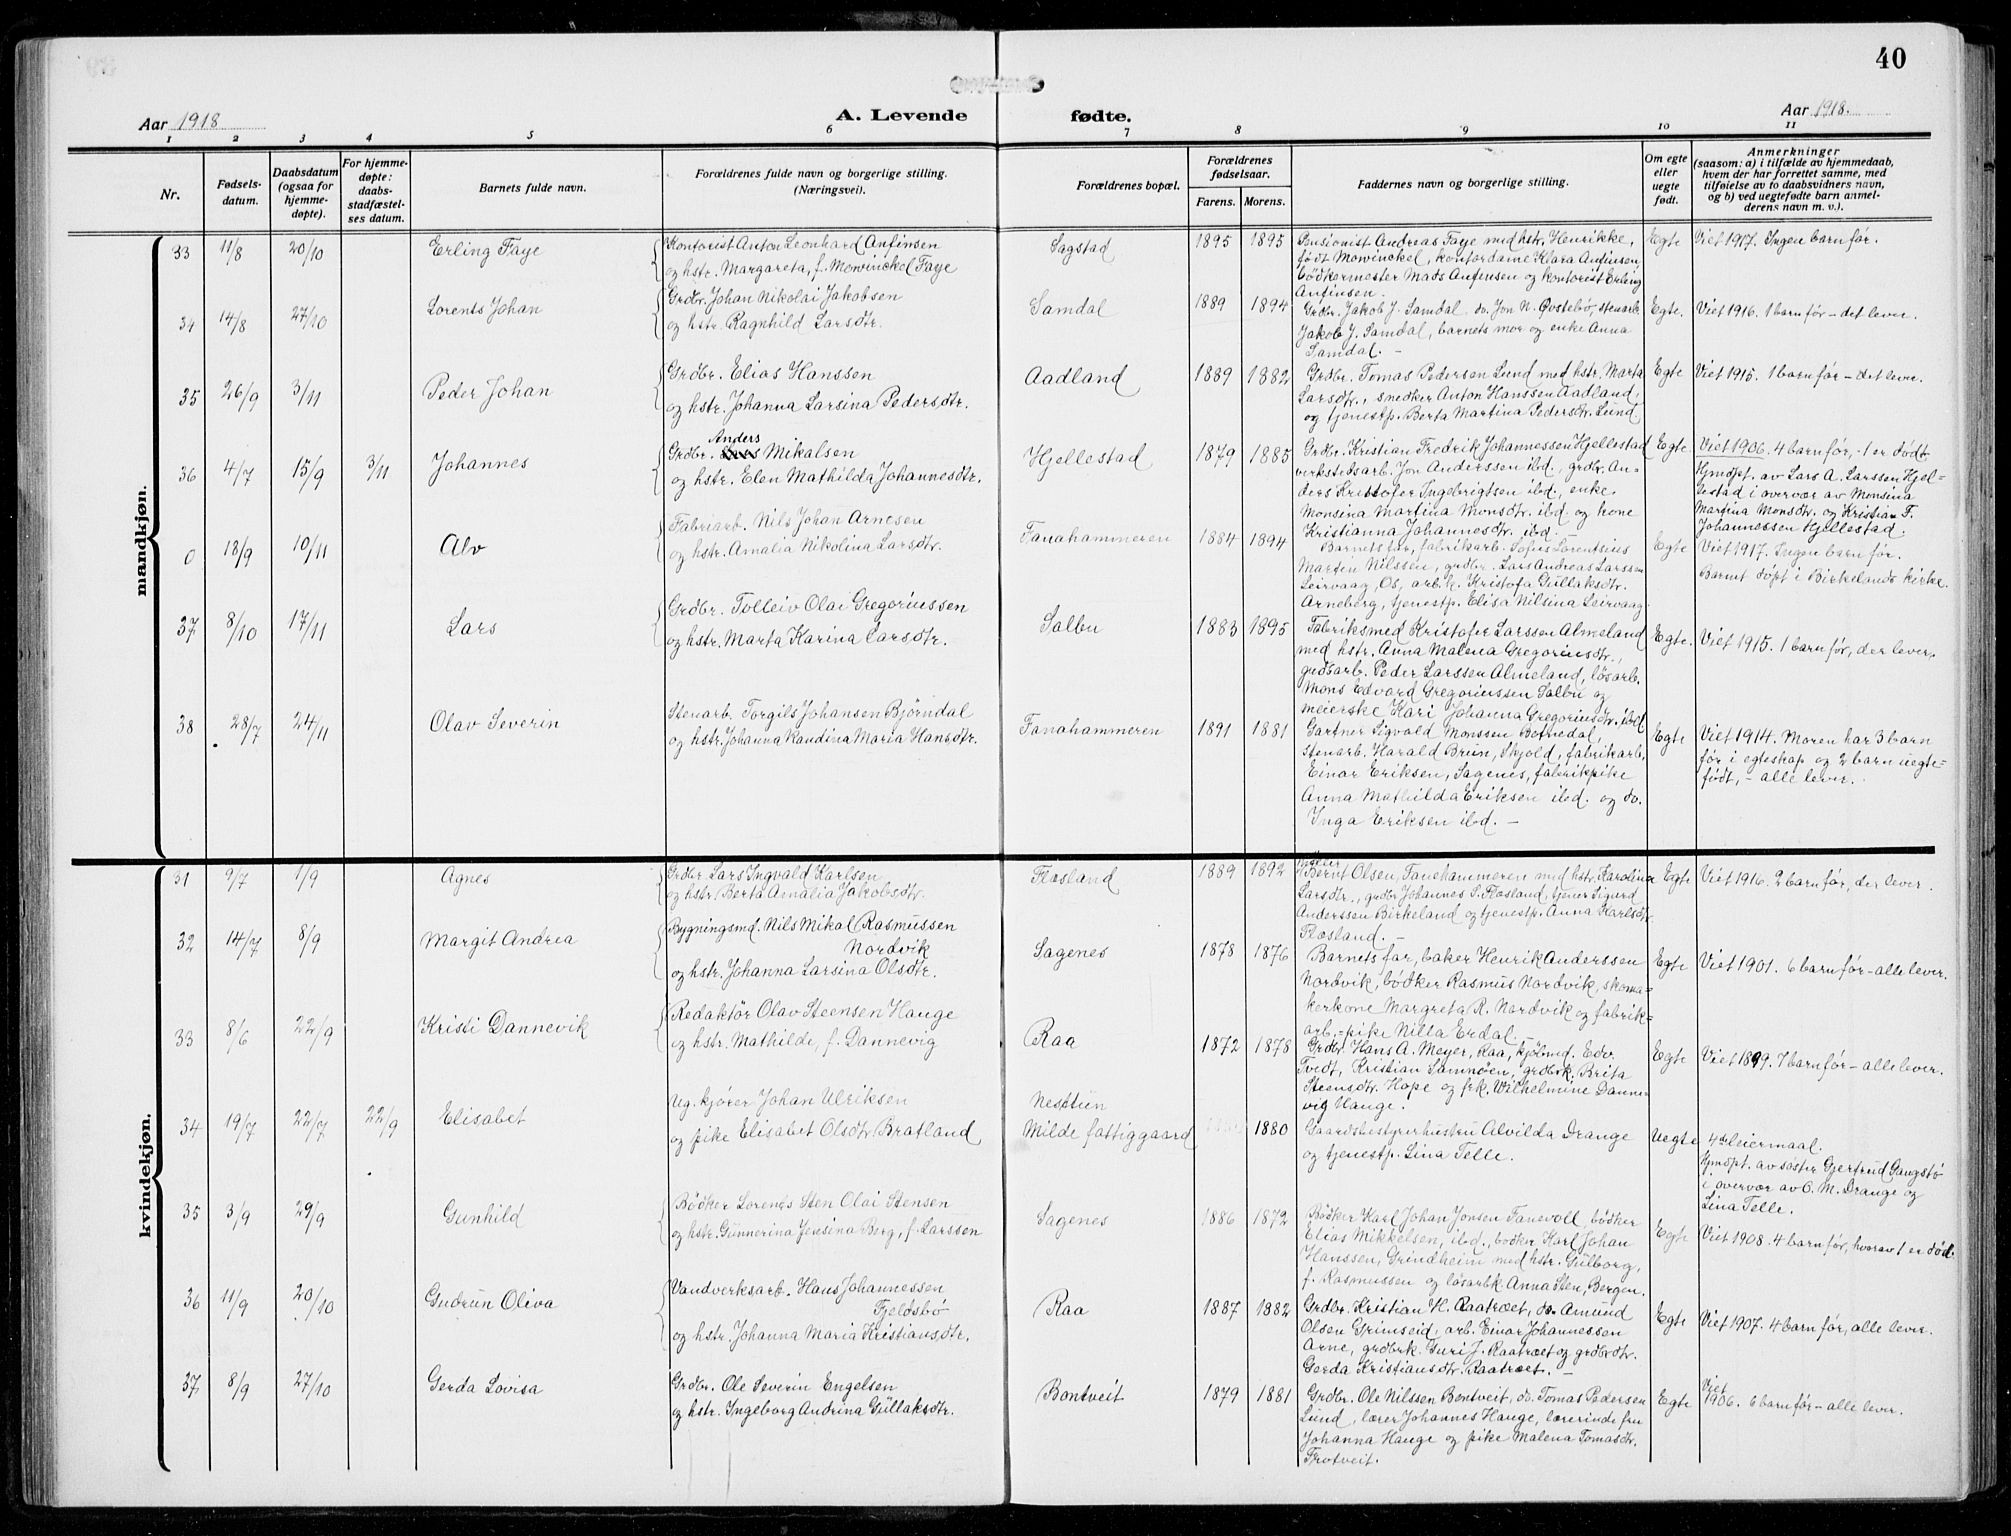 40
Aar 1918
A. Levende fødte.
Aar 1918.
1 2 3 4 5 6 7 8 9 10 11
Nr.
Fødsels-
datum.
Daabsdatum
(ogsaa for
hjemme-
døpte).
For hjemme-
døpte:
daabs-
stadfæstel-
ses datum.
Barnets fulde navn.
Forældrenes fulde navn og borgerlige stilling.
(Næringsvei).
Forældrenes bopæl.
Forældrenes
fødselsaar.
Farens. Morens.
Faddernes navn og borgerlige stilling.
Om egte
eller
uegte
født.
Anmerkninger
(saasom: a) i tilfælde av hjemmedaab,
hvem der har forrettet samme, med
tilføielse av to daabsvidners navn,
og b) ved uegtefødte barn anmel-
derens navn m. v.).
mandkjøn.
33 11/8 20/10 Erling Faye
Kontorist Anton Leonhard Anfinsen
og hstr. Margareta, f. Mowinckel Faye
Sagstad 1895 1895
Pensionist Andreas Faye med hstr. Henrikke,
født Mowinckel, kontordame Klara Anfinsen,
bødkermester Mads Anfinsen og kontorist Erling
Anfinsen.
Egte Viet 1917. Ingen barn før.
34 14/8 27/10 Lorents Johan
Grdbr. Johan Nikolai Jakobsen
og hstr. Ragnhild Larsdtr.
Samdal 1889 1894
Grdbr. Jakob J. Samdal, do. Jon N. Øvstebø, stenarb.
Jakob J. Samdal, barnets mor og enke Anna
Samdal. –
Egte. Viet 1916. 1 barn før – det lever.
35 26/9 3/11 Peder Johan
Grdbr. Elias Hanssen
og hstr. Johanna Larsina Pedersdtr.
Aadland 1889 1882
Grdbr. Tomas Pedersen Lund med hstr. Marta
Larsdtr., snedker Anton Hanssen Aadland,
og tjenestp. Berta Martina Pedersdtr. Lund
Egte Viet 1915. 1 barn før – det lever.
36 4/7 15/9 3/11 Johannes
Anders
Grdbr. Mikalsen
og hstr. Elen Mathilda Johannesdtr.
Hjellestad 1879 1885
Grdbr. Kristian Fredrik Johannessen Hjellestad
verkstedsarb. Jon Anderssen ibd., grdbr. An-
ders Kristofer Ingebrigtsen ibd., enke
Monsina Martina Monsdtr. ibd og kone
Kristianna Johannesdtr. ibd.
Egte. Viet 1906. 4 barn før, - 1 er dødt
Hjmdpt. av Lars A. Larssen Hjel-
lestad i overvær av Monsina
Martina Monsdtr. og Kristian F.
Johannessen Hjellestad.
0 18/9 10/11 Alv
Fabriarb. Nils Johan Arnesen
og hstr. Amalia Nikolina Larsdtr.
Fanahammeren 1884 1894
Barnets far, fabrikarb. Sofus Lorentsius
Marten Nilssen, grdbr. Lars Andreas Larssen
Leirvaag, Os, arb.k. Kristofa Gullaksdtr.
Arneberg, tjenestp. Elisa Nilsina Leirvaag.
Egte Viet 1917. Ingen barn før.
Barnet døpt i Birkelands kirke.
37 8/10 17/11 Lars
Grdbr. Tolleiv Olai Gregoriussen
og hstr. Marta Karina Larsdtr.
Salbu 1883 1895
Fabriksmed Kristofer Larssen Almeland
med hstr. Anna Malena Gregoriusdtr.,
grdsarb. Peder Larssen Almeland, løsarb.
Mons Edvard Gregoriussen Salbu og
meierske Kari Johanna Gregoriusdtr. ibd
Egte. Viet 1915. 1 barn før, der lever.
38 28/7 24/11 Olav Severin
Stenarb. Torgils Johansen Bjørndal
og hstr. Johanna Randina Maria Hansdtr.
Fanahammeren 1891 1881
Gartner Sigvald Monssen Botnedal,
stenarb. Harald Brun, Skjold, fabrikarb.
Einar Eriksen, Sagenes, fabrikpike
Anna Mathilda Eriksen ibd. og do.
Inga Eriksen ibd. –
Egte Viet 1914. Moren har 3 barn
før i egteskap og 2 barn uegte=
født, – alle lever.
kvindekjøn.
31 9/7 1/9 Agnes
Grdbr. Lars Ingvald Karlsen
og hstr. Berta Amalia Jakobsdtr.
Fløsland 1889 1892
Bernt Olsen, Fanehammeren med hstr. Karolina
Larsdtr., grdbr Johannes S. Fløsland, tjener Sigurd
Anderssen Birkeland og tjenestp. Anna Karlsdtr.
Fløsland. –
Egte Viet 1916. 2 barn før, der lever.
32 14/7 8/9 Margit Andrea
Bygningsmd. Nils Mikal Rasmussen
Nordvik
og hstr. Johanna Larsina Olsdtr.
Sagenes 1878 1876
Barnets far, baker Henrik Anderssen
Nordvik, bødker Rasmus Nordvik, skoma=
kerkone Margreta R. Nordvik og fabrik=
arb.=pike Nilla Erdal. –
Egte Viet 1901. 6 barn før – alle lever.
33 8/6 22/9 Kristi Dannevik
Redaktør Olav Steensen Hauge
og hstr. Mathilde, f. Dannevig
Raa 1872 1878
Grdbr. Hans A. Meyer, Raa, kjøbmd. Edv.
Tvedt, Kristian Samnøen, grdbrk. Brita
Steensdtr. Hope og frk. Wilhelmine Danne-
vig Hauge.
Egte Viet 1899. 7 barn før – alle lever.
34 19/7 22/7 22/9 Elisabet
Ug. kjører Johan Ulriksen
og pike Elisabet Olsdtr Bratland
Nesttun
Milde fattiggaard 1880
Gaardsbestyrerhustru Alvilda Drange
og tjenestp. Lina Telle.
Uegte 4de leiermaal.
Hjmdpt. av søster Gjertrud Gangstø
i overvær av O. M. Drange og
Lina Telle.
35 3/9 29/9 Gunhild
Bødker Lorents Sten Olai Stensen
og hstr. Gunnerina Jensina Berg, f. Larssen
Sagenes 1886 1872
Bødker Karl Johan Jonsen Fanevoll, bødker
Elias Mikkelsen, ibd., bødker Karl Johan
Hanssen, Grindheim med hstr. Gulborg,
f. Rasmussen og løsarbk Anna Sten, Bergen.
Egte Viet 1908. 4 barn før, hvorav 1 er død.
36 11/9 20/10 Gudrun Oliva
Vandverksarb. Hans Johannessen
Fjeldsbø
og hstr. Johanna Maria Kristiansdtr.
Raa 1887 1882
Grdbr. Kristian H. Raatræet, do. Amund
Olsen Grimseid, arb. Einar Johannessen
Arne, grdbrk. Guri J. Raatræet og grdbrdtr.
Gerda Kristiansdtr. Raatræet. –
Egte Viet 1907. 4 barn før, alle lever.
37 8/9 27/10 Gerda Lovisa
Grdbr. Ole Severin Engelsen
og hstr. Ingeborg Andrina Gullaksdtr.
Bontveit 1879 1881
Grdbr. Ole Nilssen Bontveit, do. Tomas Pedersen
Lund, lærer Johannes Hauge, lærerinde fru
Johanna Hauge og pike Malena Tomasdtr.
Trotveit.
Egte Viet
1906. 6 barn før – alle lever.